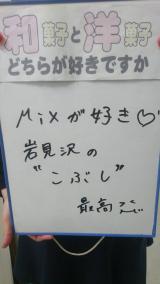 和菓子と洋菓子
どちらが好きですか
Mixが好き♡
岩見沢の
"こぶし"
最高